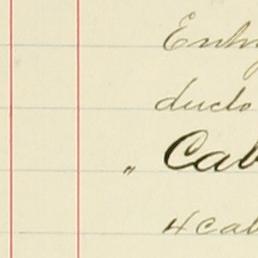 ducto
„ Cab
4 cab